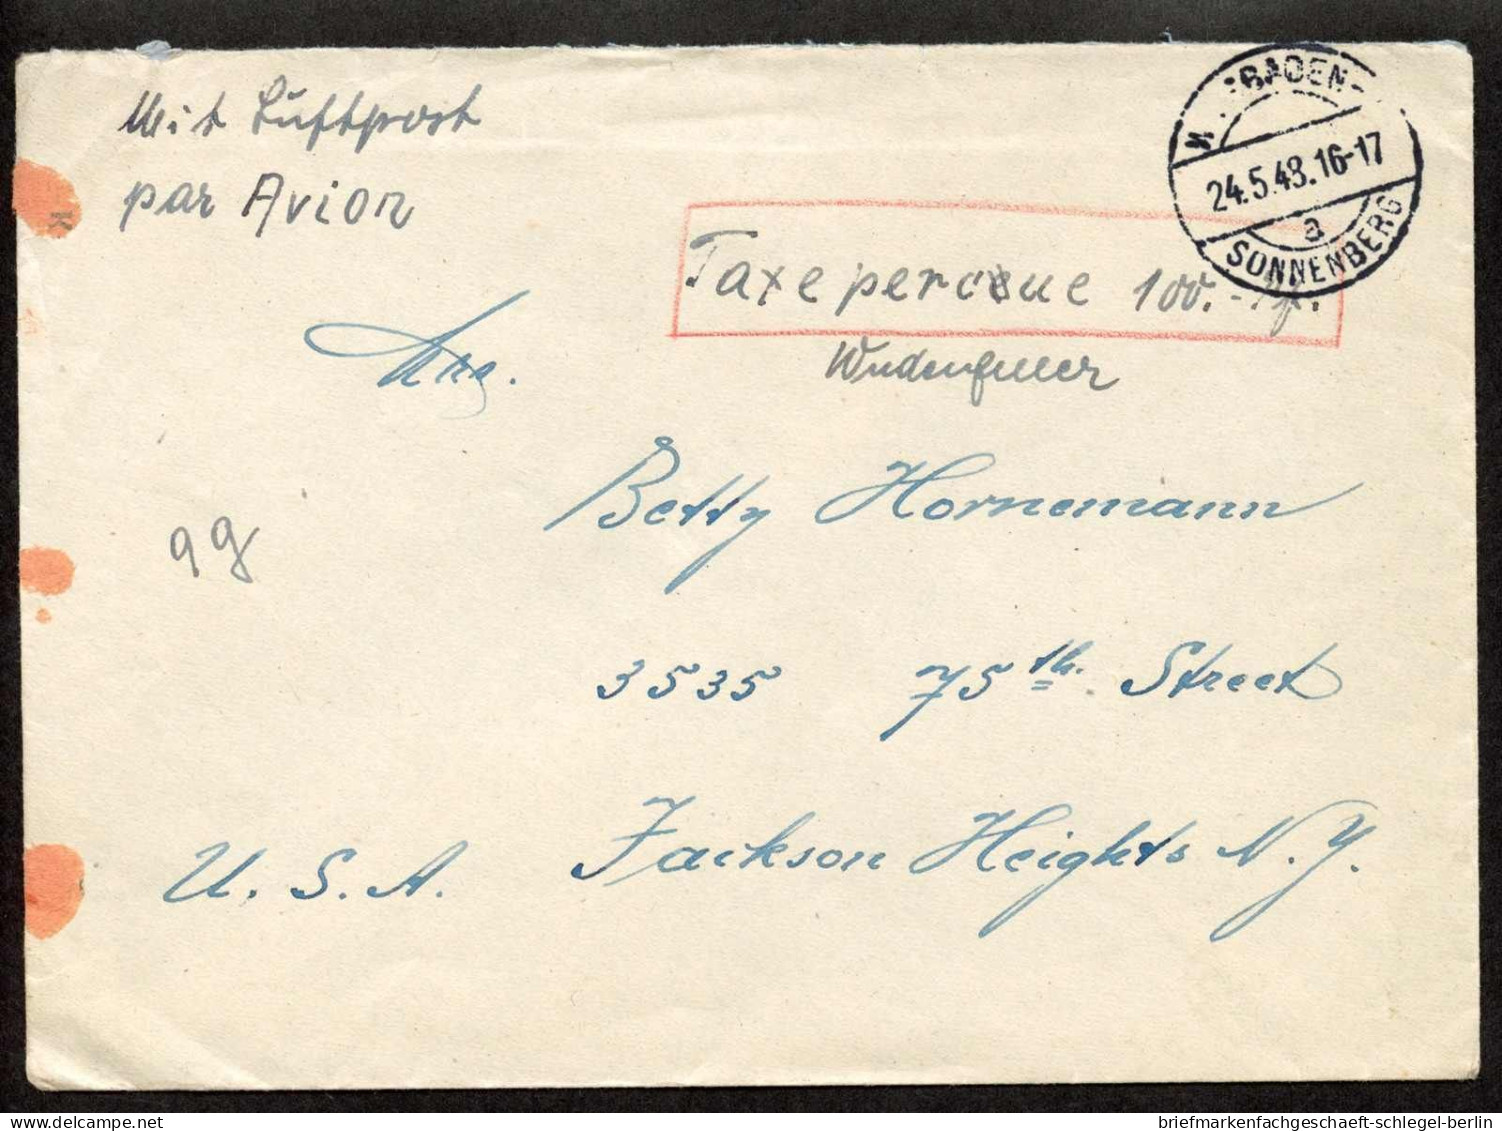 Mit Luftpost
par Avion
BADEN-
24.5.48.16-17
a
SONNENBERG
Taxe percue 100.-Pf.
Betty Hornemann
9g
3535 75th. Street
Jackson Heights N.Y.
U.S.A.
K
briefmarkenfachgeschaeft-schlegel-berlin